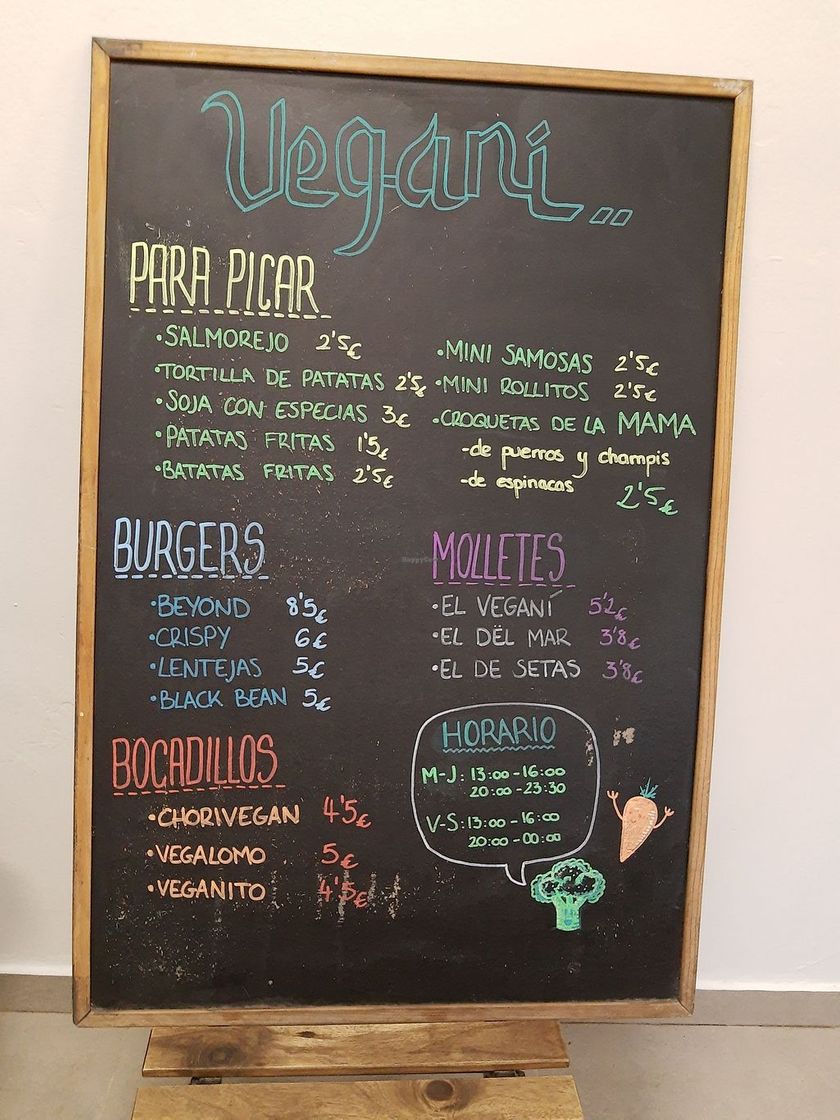 Veganí...
PARA PICAR
•SALMOREJO 2'5€
•TORTILLA DE PATATAS 2'5€
•SOJA CON ESPECIAS 3€
•PATATAS FRITAS 1'5€
•BATATAS FRITAS 2'5€
•MINI SAMOSAS 2'5€
•MINI ROLLITOS 2'5€
•CROQUETAS DE LA MAMA
-de puerros y champis
-de espinacas
2'5€
BURGERS
•BEYOND 8'5€
•CRISPY 6€
•LENTEJAS 5€
•BLACK BEAN 5€
MOLLETES
•EL VEGANÍ 5'2€
•EL DËL MAR 3'8€
•EL DE SETAS 3'8€
BOCADILLOS
•CHORIVEGAN 4'5€
•VEGALOMO 5€
•VEGANITO 4'5€
HORARIO
M-J: 13:00-16:00
20:00-23:30
V-S: 13:00-16:00
20:00-00:00